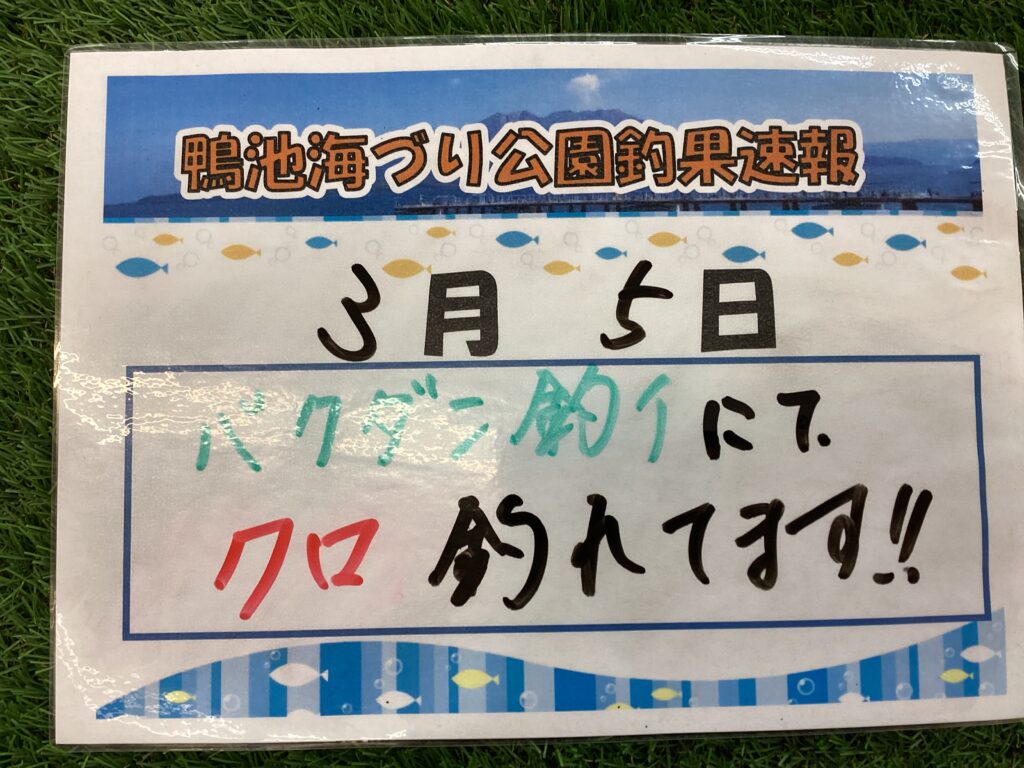 鴨池海づり公園釣果速報
3月 5日
バクダン釣イにて
クロ 釣れてます!!